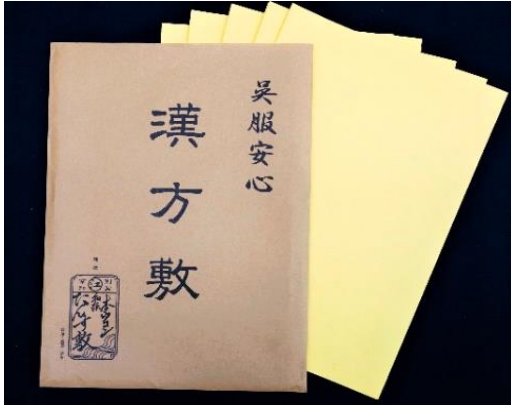 呉服安心
漢方敷